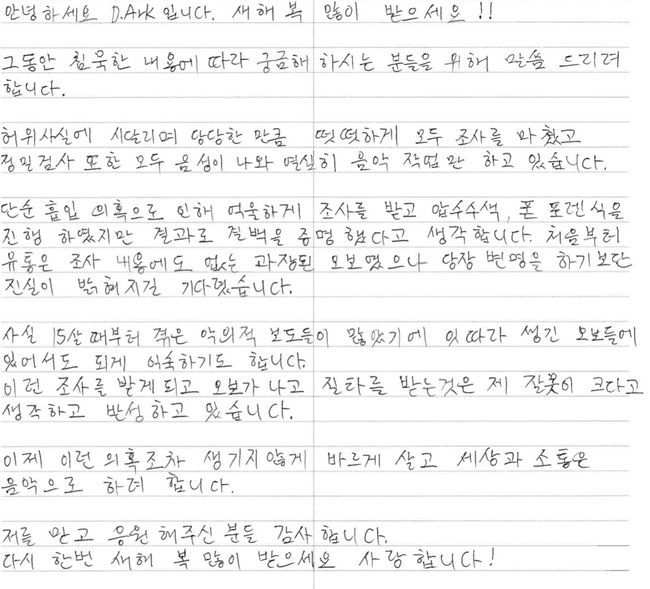 안녕하세요 D.Ark 입니다. 새해 복 많이 받으세요 !!
그동안 침묵한 내용에 따라 궁금해 하시는 분들을 위해 말씀 드리려
합니다.
허위사실에 시달리며 당당한 만큼 떳떳하게 모두 조사를 마쳤고
정밀검사 또한 모두 음성이 나와 열심히 음악 작업만 하고 있습니다.
단순 흡입 의혹으로 인해 억울하게 조사를 받고 압수수색, 폰 포렌식을
진행 하였지만 결과로 결백을 증명 했다고 생각합니다. 처음부터
유통은 조사 내용에도 없는 과장된 오보였으나 당장 변명을 하기보단
진실이 밝혀지길 기다렸습니다.
사실 15살 때부터 겪은 악의적 보도들이 많았기에 잇따라 생긴 오보들에
있어서도 되게 익숙하기도 합니다.
이런 조사를 받게되고 오보가 나고 질타를 받는것은 제 잘못이 크다고
생각하고 반성하고 있습니다.
이제 이런 의혹조차 생기지않게 바르게 살고 세상과 소통은
음악으로 하려 합니다.
저를 믿고 응원 해주신 분들 감사합니다.
다시 한번 새해 복 많이 받으세요 사랑합니다!